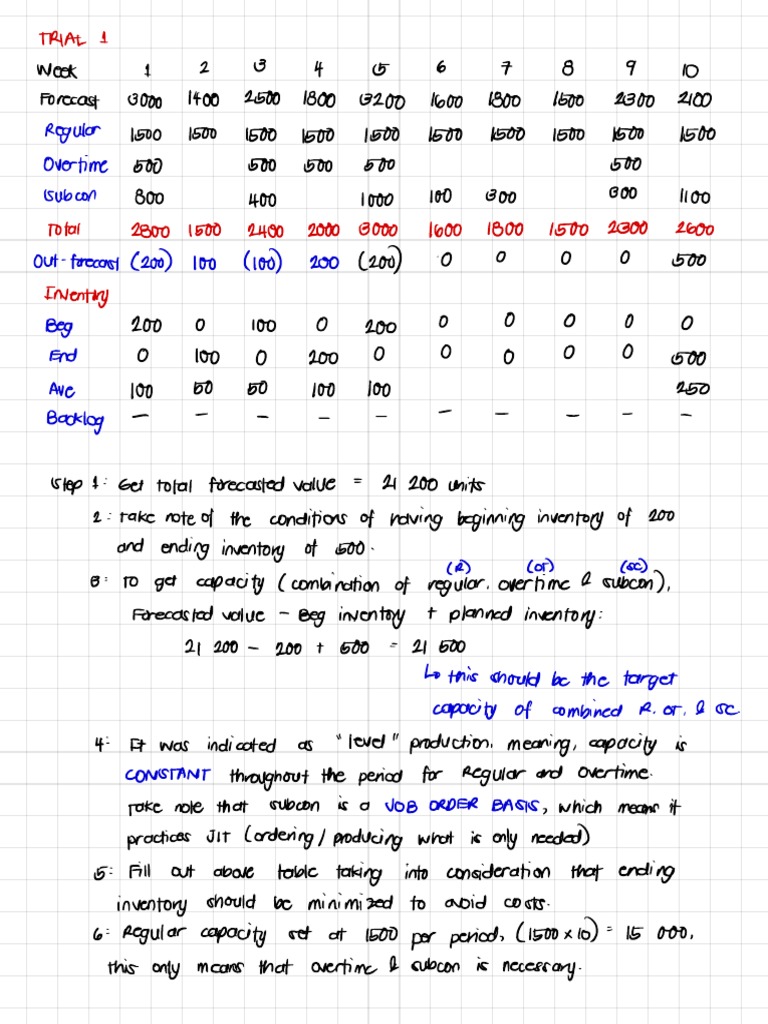 TRIAL 1
Week 1 2 3 4 5 6 7 8 9 10
Forecast 3000 1400 2500 1800 3200 1600 1800 1500 2300 2100
Regular 1500 1500 1500 1500 1500 1500 1500 1500 1500 1500
Overtime 500 500 500 500 500
Subcon 800 400 1000 100 300 300 1100
Total 2800 1500 2400 2000 3000 1600 1800 1500 2300 2600
Out-forecast (200) 100 (100) 200 (200) 0 0 0 0 500
Inventory
Beg 200 0 100 0 200 0 0 0 0 0
End 0 100 0 200 0 0 0 0 0 500
Ave 100 50 50 100 100 250
Backlog – – – – – – – – – –
Step 1: Get total forecasted value = 21 200 units
2: Take note of the conditions of having beginning inventory of 200
and ending inventory of 500.
(R) (OT) (SC)
3: To get capacity (combination of regular, overtime & subcon),
Forecasted value – Beg inventory + planned inventory:
21 200 – 200 + 500 = 21 500
↳ this should be the target
capacity of combined R, OT, & SC
4: It was indicated as "level" production, meaning, capacity is
CONSTANT throughout the period for Regular and Overtime.
Take note that subcon is a JOB ORDER BASIS, which means it
practices JIT (ordering/producing what is only needed)
5: Fill out above table taking into consideration that ending
inventory should be minimized to avoid costs.
6: Regular capacity set at 1500 per period, (1500 x 10) = 15 000,
this only means that overtime & subcon is necessary.